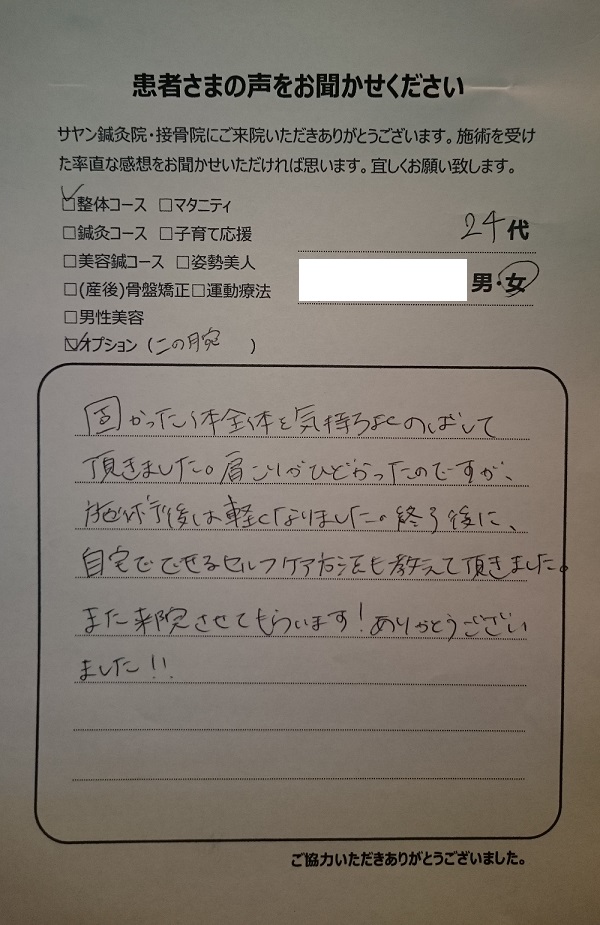 患者さまの声をお聞かせください
サヤン鍼灸院・接骨院にご来院いただきありがとうございます。施術を受け
た率直な感想をお聞かせいただければ思います。宜しくお願い致します。
☑整体コース □マタニティ
□鍼灸コース □子育て応援
□美容鍼コース □姿勢美人
□(産後)骨盤矯正□運動療法
□男性美容
☑オプション (二の腕 )
24代
男・女
固かった体全体を気持ちよくのばして
頂きました。肩こりがひどかったのですが、
施術後は軽くなりました。終了後に、
自宅でできるセルフケア方法も教えて頂きました。
また来院させてもらいます!ありがとうござい
ました!!
ご協力いただきありがとうございました。